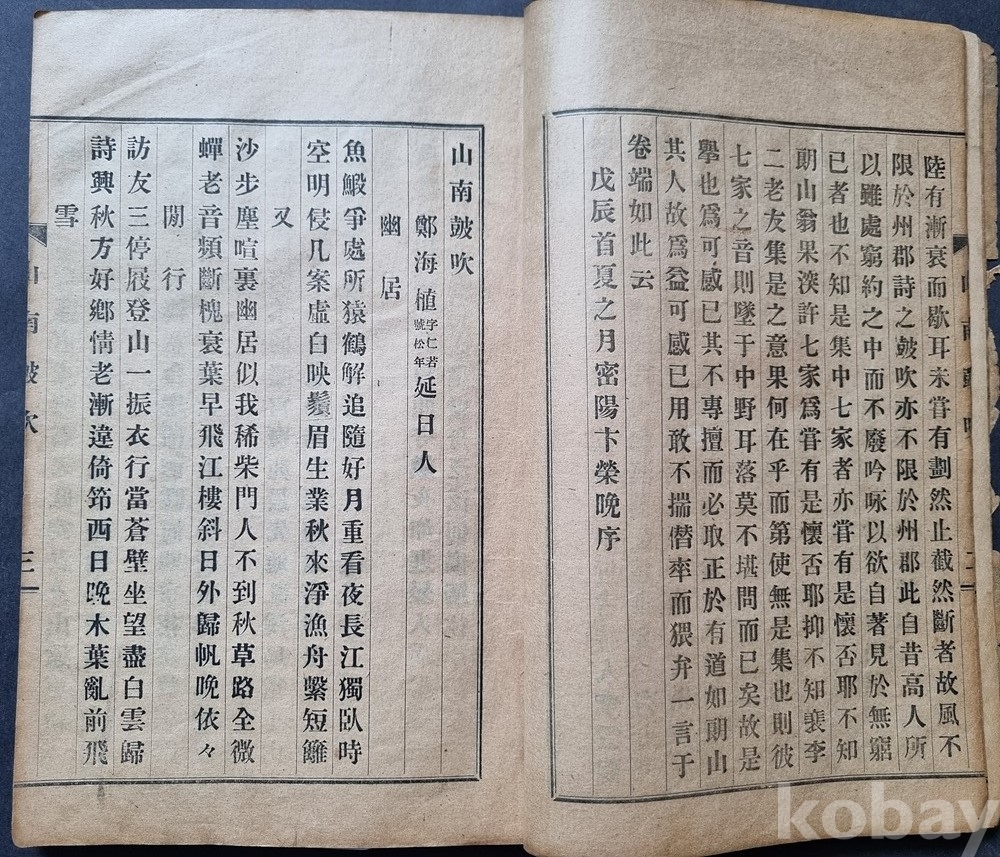 陸有漸衰而歇耳未嘗有劃然止截然斷者故風不
限於州郡詩之皷吹亦不限於州郡此自昔高人所
以雖處窮約之中而不廢吟咏以欲自著見於無窮
已者也不知是集中七家者亦嘗有是懷否耶不知
朗山翁果浹許七家爲嘗有是懷否耶抑不知裵李
二老友集是之意果何在乎而第使無是集也則彼
七家之音則墜于中野耳落莫不堪問而已矣故是
擧也爲可感已其不專擅而必取正於有道如朗山
其人故爲益可感已用敢不揣僭率而猥弁一言于
卷端如此云
戊辰首夏之月密陽卞榮晚序
二
山南皷吹
鄭海植字仁若號松年延日人
幽居
魚鰕爭處所猿鶴解追隨好月重看夜長江獨臥時
空明侵几案虛白映鬚眉生業秋來淨漁舟繫短籬
又
沙步塵喧裏幽居似我稀柴門人不到秋草路全微
蟬老音頻斷槐衰葉早飛江樓斜日外歸帆晚依々
閒行
訪友三停屐登山一振衣行當蒼壁坐望盡白雲歸
詩興秋方好鄕情老漸違倚笻西日晚木葉亂前飛
雪
山南皷吹
三
kobay